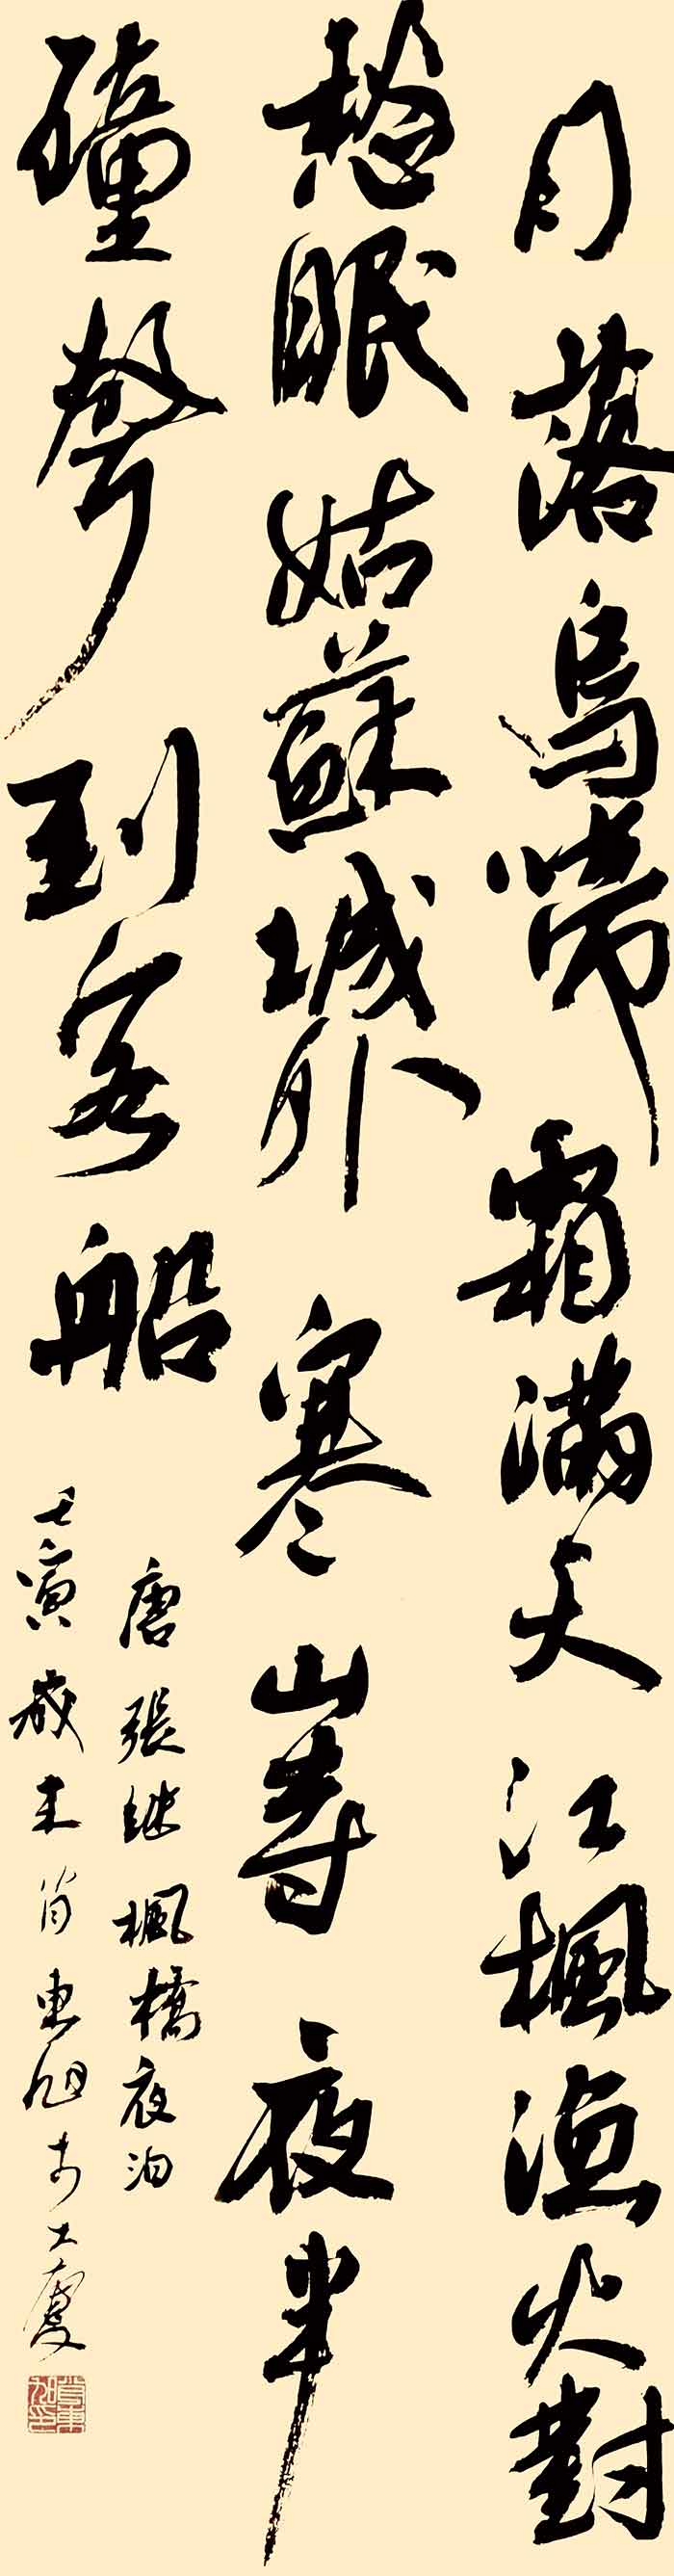 月落烏啼霜滿天江楓漁火對
愁眠姑蘇城外寒山寺夜半
鐘聲到客船
唐張继楓橋夜泊
壬寅歲末肖東旭於大廈